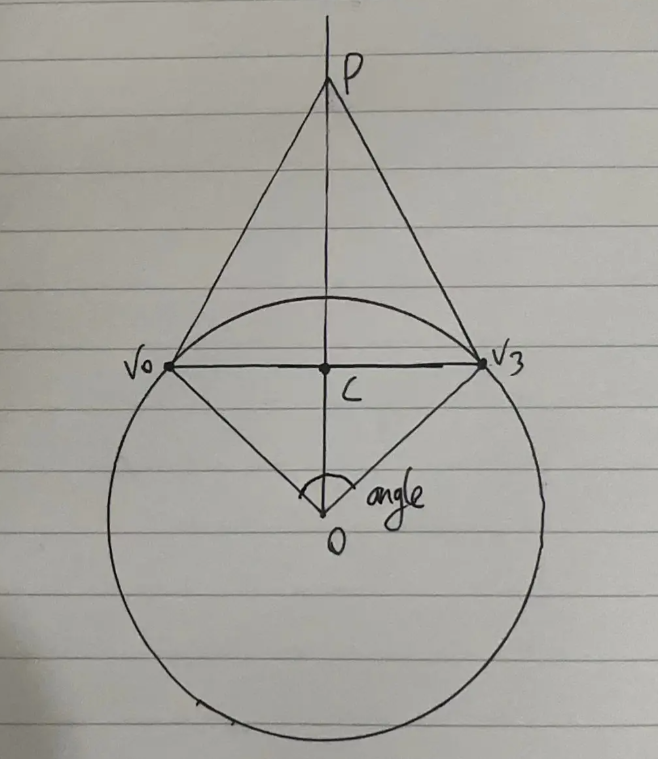 P
V0
V3
C
angle
O